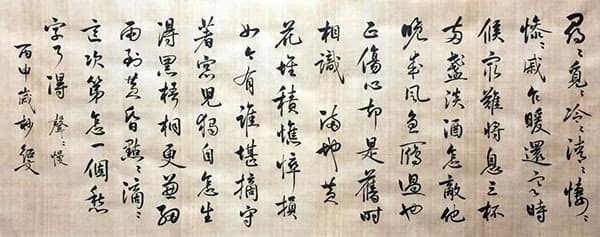 尋〻覓〻冷〻清〻悽〻
慘〻戚〻乍暖還寒時
候最難將息三杯
兩盞淡酒怎敵他
晚來風急雁過也
正傷心却是舊時
相識 滿地黃
花堆積憔悴損
如今有誰堪摘守
著窗兒獨自怎生
得黑梧桐更兼細
雨到黃昏點〻滴〻
這次第怎一個愁
字了得 聲〻慢
丙申歲杪